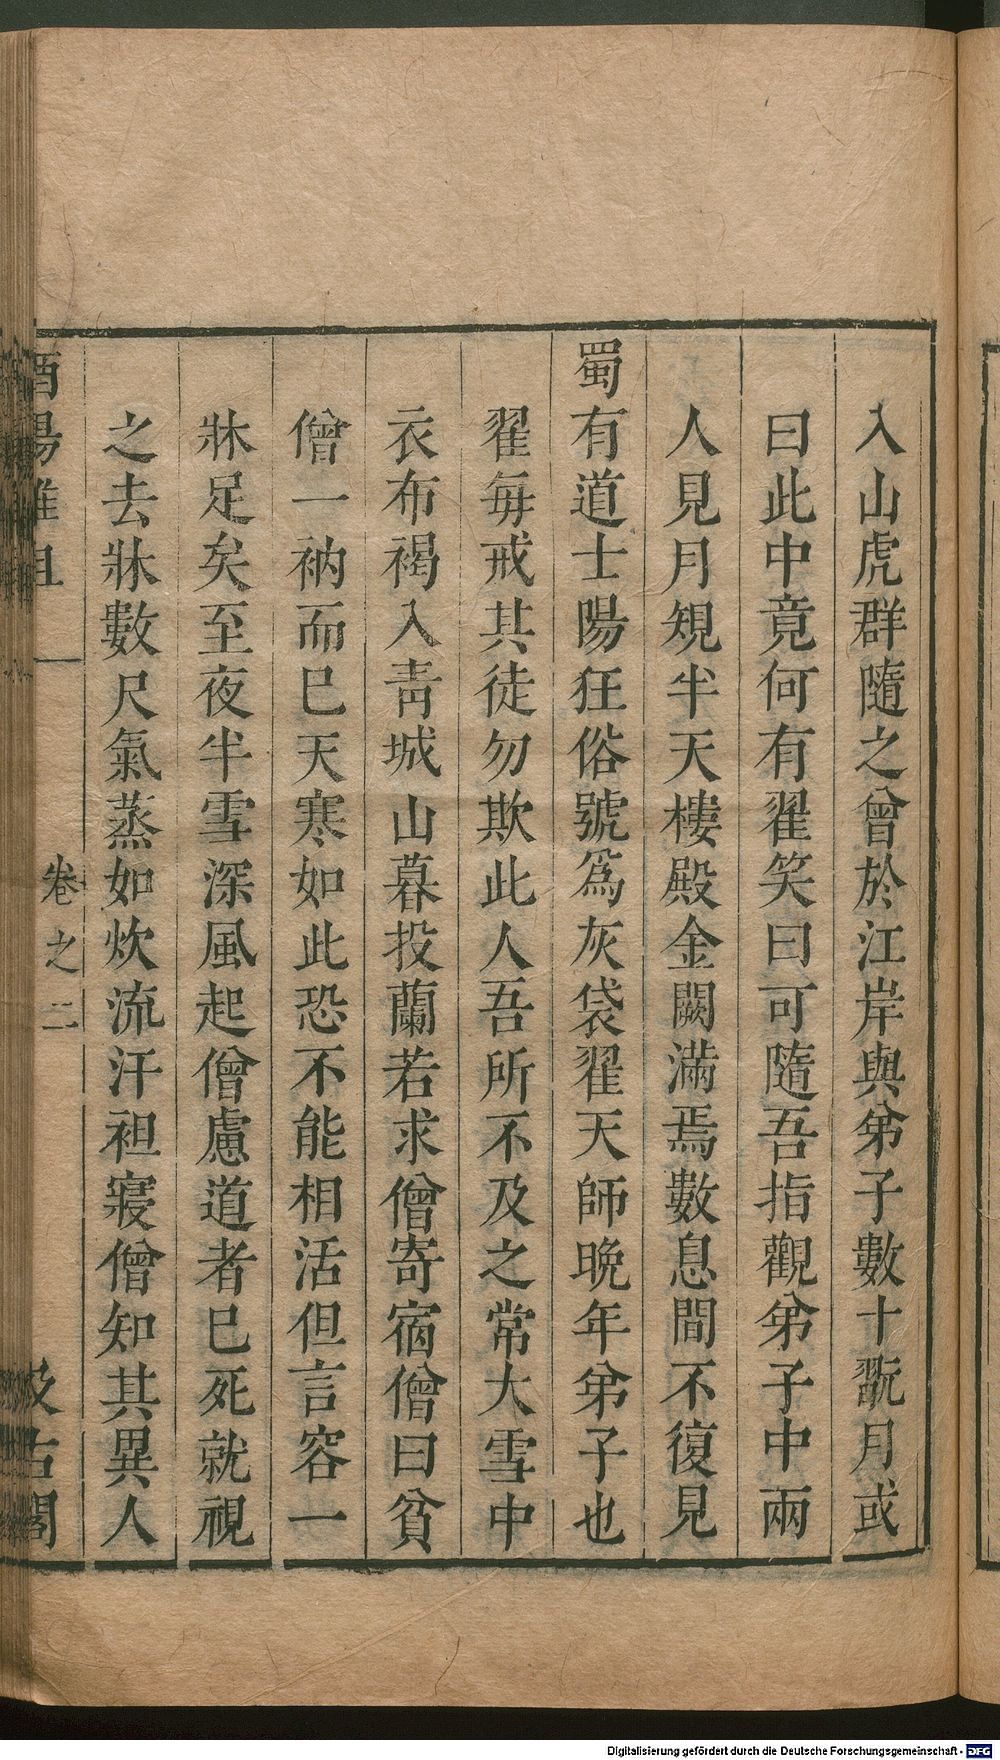 入山虎群隨之曾於江岸與弟子數十翫月或
曰此中竟何有翟笑曰可隨吾指觀弟子中兩
人見月規半天樓殿金闕滿焉數息間不復見
蜀有道士陽狂俗號為灰袋翟天師晚年弟子也
翟每戒其徒勿欺此人吾所不及之常大雪中
衣布褐入青城山暮投蘭若求僧寄宿僧曰貧
僧一衲而已天寒如此恐不能相活但言容一
牀足矣至夜半雪深風起僧慮道者已死就視
之去牀數尺氣蒸如炊流汗袒寢僧知其異人
酉陽雜俎 卷之二 汲古閣
Digitalisierung gefördert durch die Deutsche Forschungsgemeinschaft - DFG